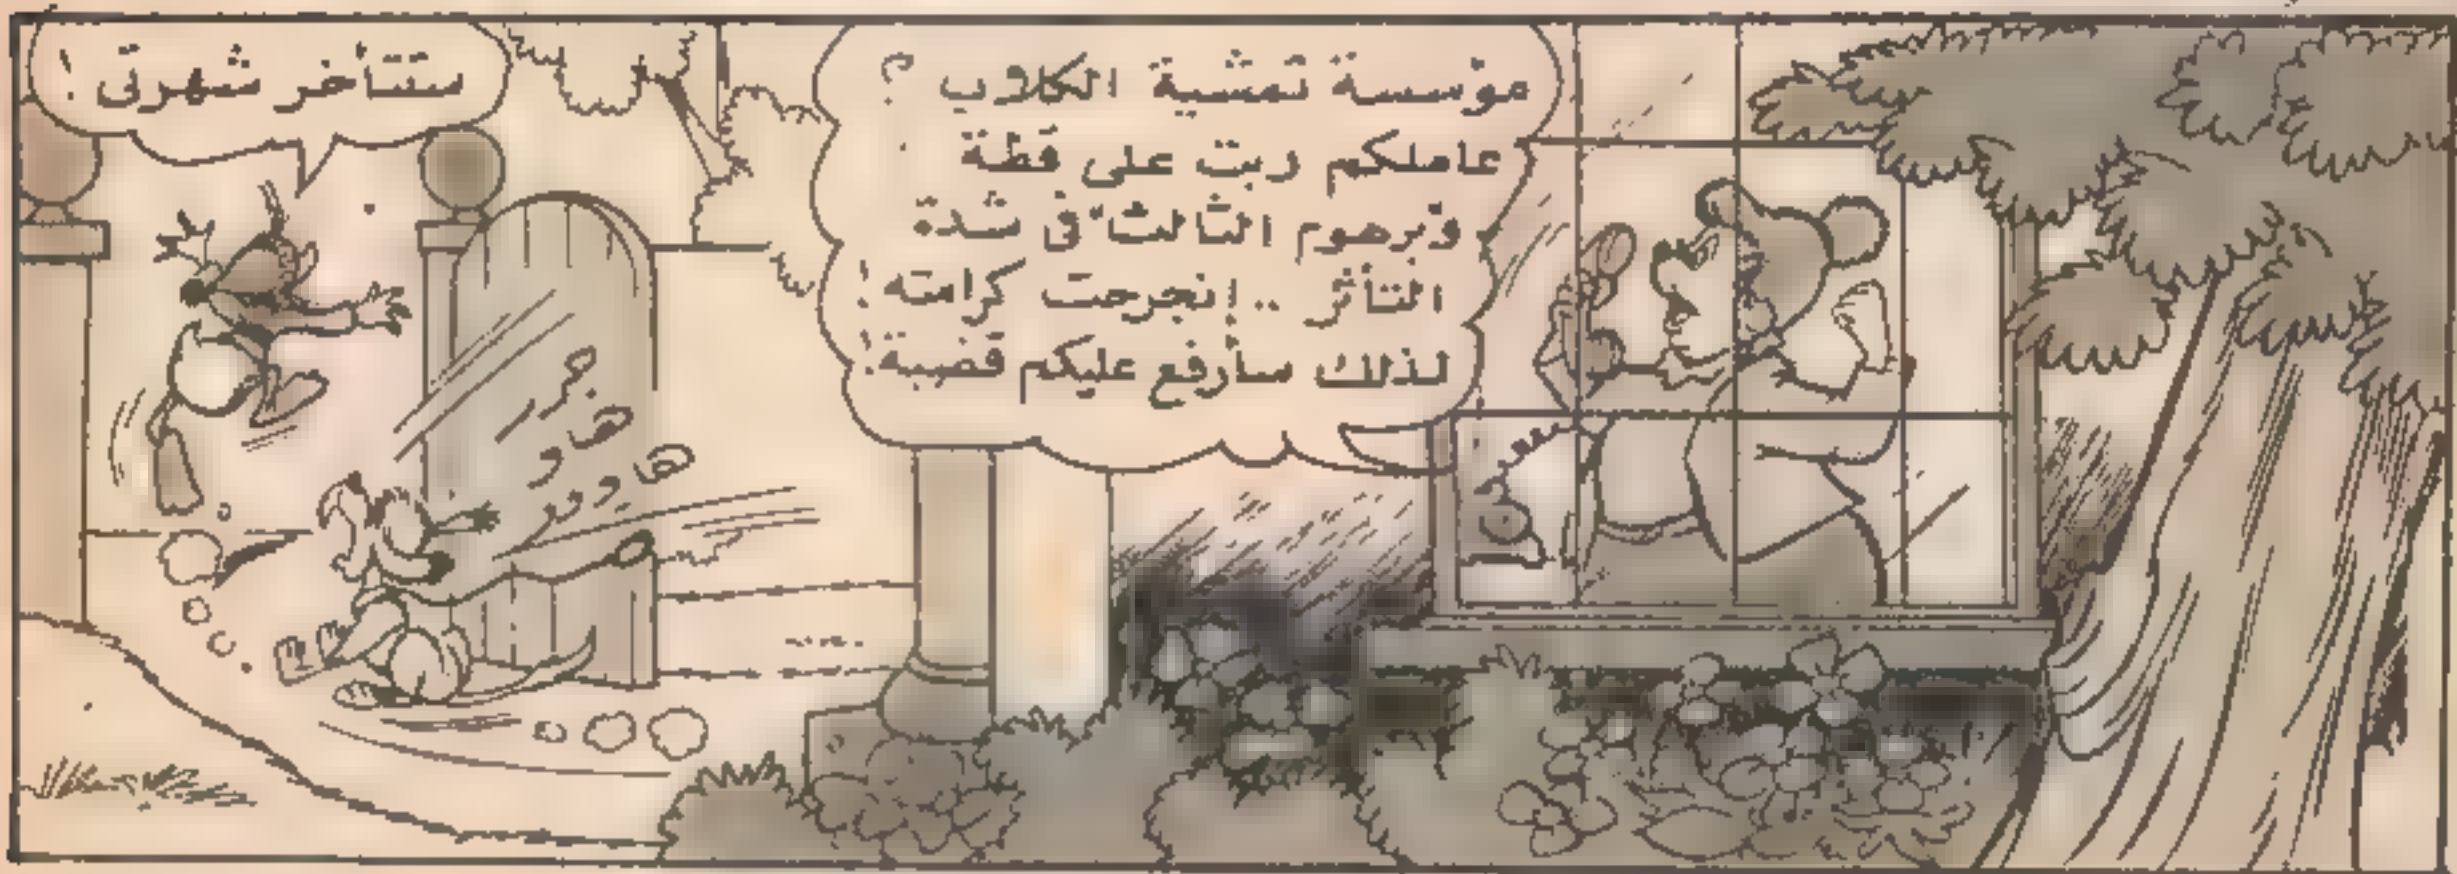 مؤسسة تمشية الكلاب ؟
عاملكم ربت على قطة
و"برهوم الثالث" في شدة
التأثر .. إنجرحت كرامته !
لذلك سأرفع عليكم قضية !
ستتأخر شهرتى !
هاو